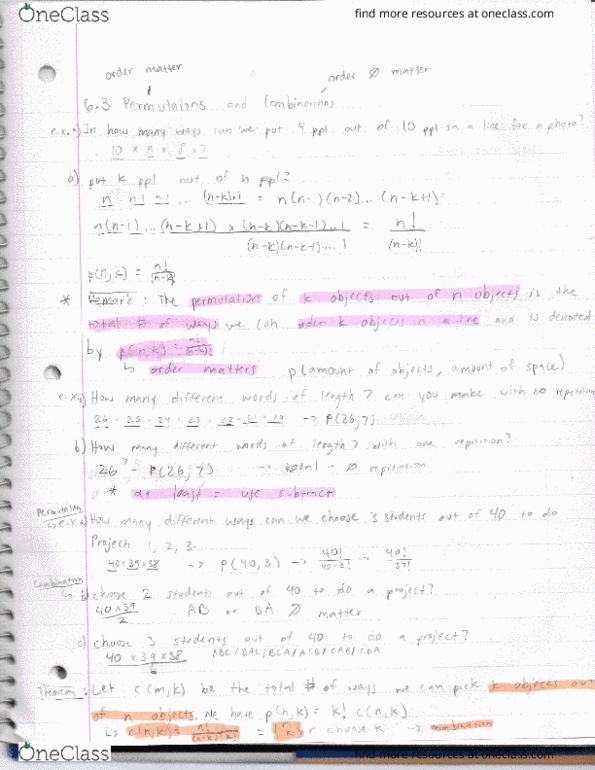 OneClass
find more resources at oneclass.com
order matter
order Ø matter
6.3 Permutaions and Combinations
e.x. a) In how many ways can we put 4 ppl out of 10 ppl in a line for a photo?
10 × 9 × 8 × 7
b) put k ppl out of n ppl?
n n-1 ... (n-k)+1 = n(n-1)(n-2)... (n-k+1)
n(n-1)...(n-k+1) × (n-k)(n-k-1)...1 = n!
(n-k)(n-k-1)...1 (n-k)!
p(n,k) = n! / (n-k)!
* Remark: The permutation of k objects out of n objects is the
total # of ways we can order k objects in a line and is denoted
by p(n,k) = n! / (n-k)!
↳ order matters p(amount of objects, amount of space)
e.x. a) How many different words of length 7 can you make with no repetition
26 · 25 · 24 · 23 · 22 · 21 · 20 → P(26,7)
b) How many different words of length 7 with one repitition?
26⁷ - P(26,7) → total - Ø repitition
* at least = use subtract
Permutation
↳ e.x. a) How many different ways can we choose 3 students out of 40 to do
Project 1, 2, 3.
40×39×38 → P(40,3) → 40! / 40-3! → 40! / 37!
Combination
↳ b) choose 2 students out of 40 to do a project?
40×39 / 2 AB or BA Ø matter
c) choose 3 students out of 40 to do a project?
40×39×38 / 6 ABC/BAC/BCA/ACB/CAB/CBA
Theorem: Let c(n,k) be the total # of ways we can pick k objects out
of n objects. We have p(n,k) = k! c(n,k)
↳ c(n,k) = n! / (n-k)! k! = (n k) or choose k → combination
OneClass
find more resources at oneclass.com